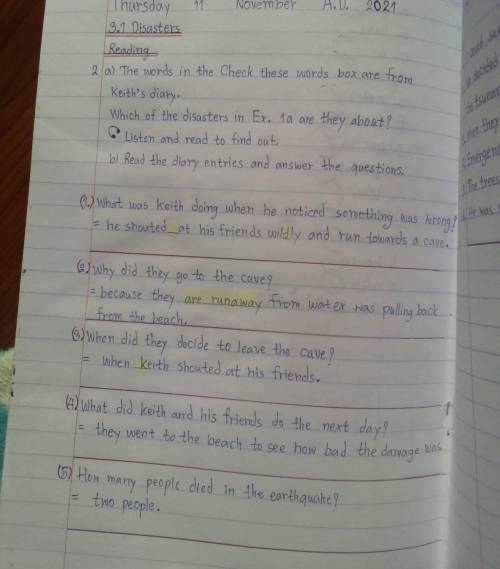 Thursday 11 November A.D. 2021
3.1 Disasters
Reading
2 a) The words in the Check these words box are from
Keith's diary.
Which of the disasters in Ex. 1a are they about?
Listen and read to find out.
b) Read the diary entries and answer the questions.
(1.) What was keith doing when he noticed something was wrong?
= he shouted at his friends wildly and run towards a cave.
(2) Why did they go to the cave?
= because they are runaway from water was pulling back
from the beach.
(3) When did they decide to leave the cave?
= when keith shouted at his friends.
(4) What did keith and his friends do the next day?
= they went to the beach to see how bad the damage was.
(5) How many people died in the earthquake?
= two people.
decided
they
Emergen
The trees
He was